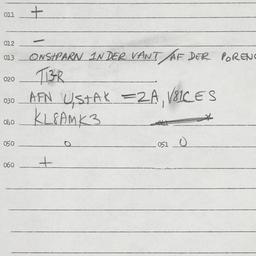 011 +
012 –
013 ONSHPARN INDER VANT / AF DER PORENC
020 TIBR
030 AFN U,STAK = 2A, V81CES
040 KL8AMK3
050 0 051 0
060 +